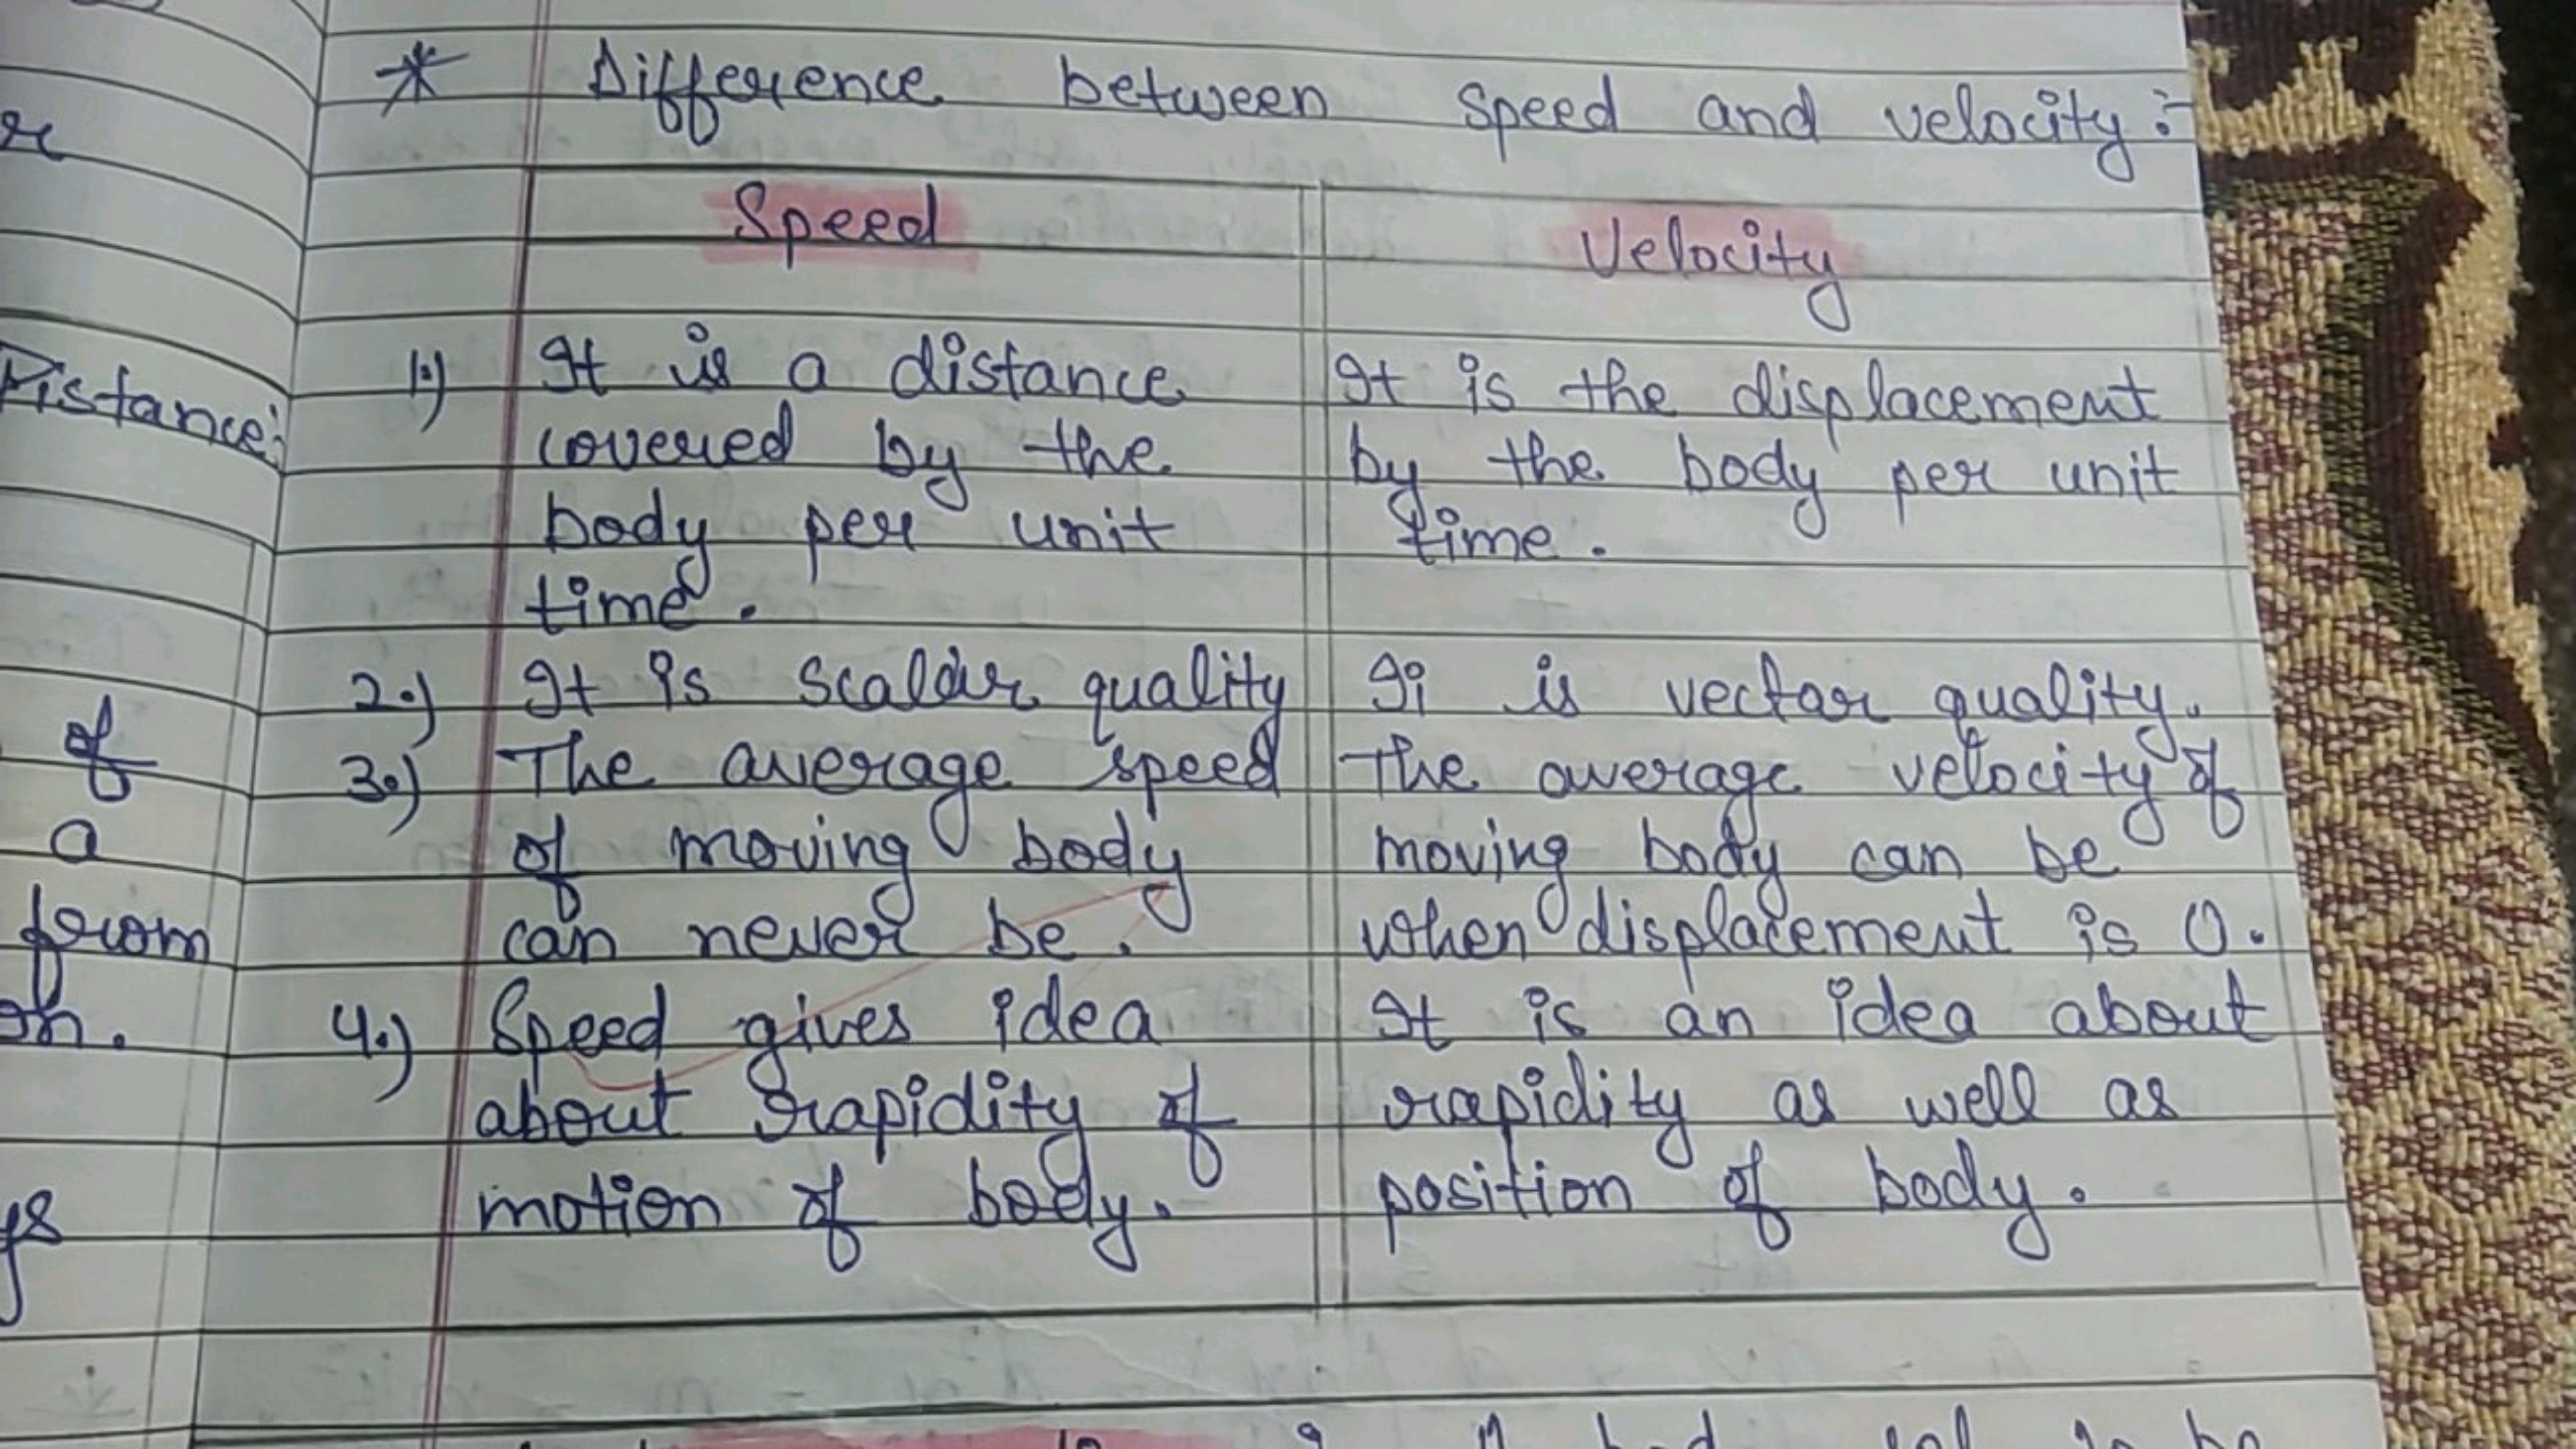 * Difference between speed and velocity :-
Speed
1.) It is a distance
covered by the
body per unit
time.
2.) It is scalar quality
3.) The average speed
of moving body
can never be.
4.) Speed gives idea
about rapidity of
motion of body.
Velocity
It is the displacement
by the body per unit
time.
Ii is vector quality.
The average velocity of
moving body can be
when displacement is 0.
It is an idea about
rapidity as well as
position of body.
Distance:
of
a
from